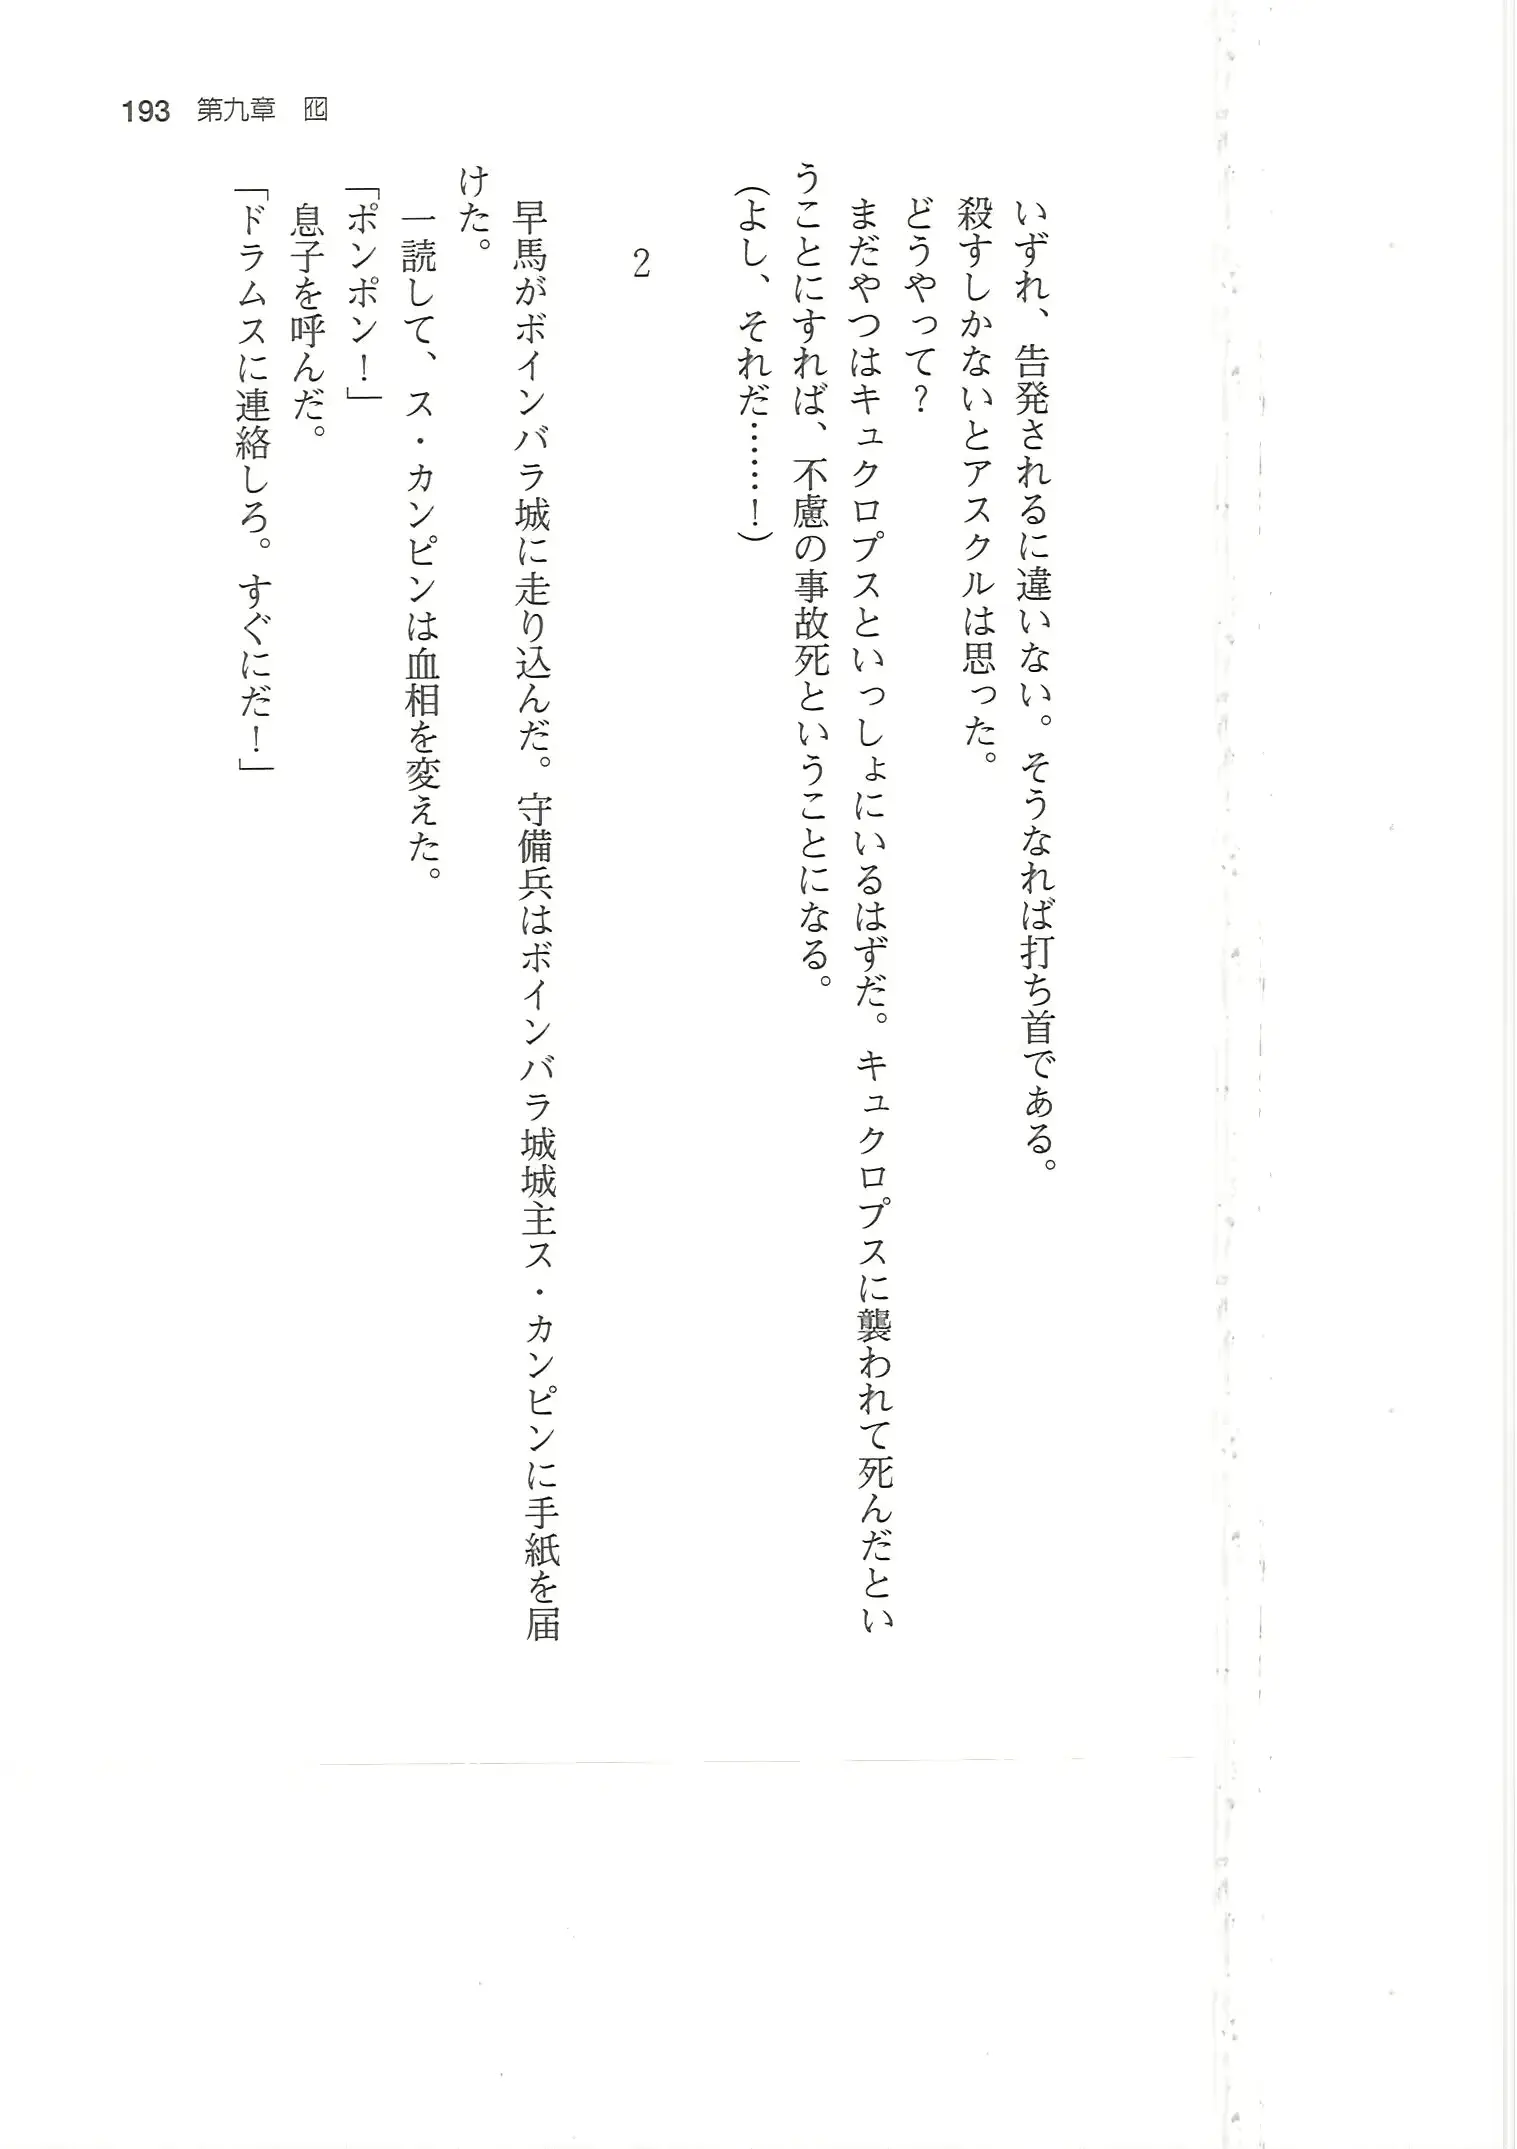 193 第九章 囮
いずれ、告発されるに違いない。そうなれば打ち首である。
殺すしかないとアスクルは思った。
どうやって？
まだやつはキュクロプスといっしょにいるはずだ。キュクロプスに襲われて死んだとい
うことにすれば、不慮の事故死ということになる。
（よし、それだ……！）
2
早馬がボインバラ城に走り込んだ。守備兵はボインバラ城城主ス・カンピンに手紙を届
けた。
一読して、ス・カンピンは血相を変えた。
「ポンポン！」
息子を呼んだ。
「ドラムスに連絡しろ。すぐにだ！」